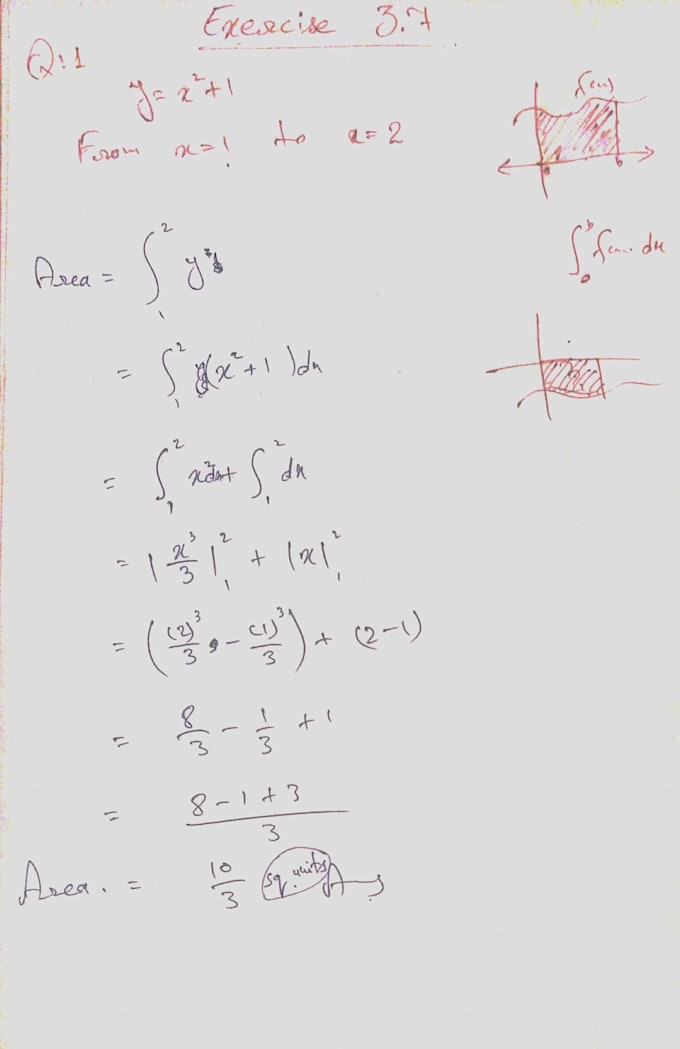 Exercise 3.7
Q:1
y = x²+1
From x=1 to x=2
f(x)
a b
Area = ∫₁²
∫ₐᵇ f(x) dx
= ∫₁² (x²+1)dx
= ∫₁² x²dx + ∫₁² dx
= |x³/3|₁² + |x|₁²
= ((2)³/3 - (1)³/3) + (2-1)
= 8/3 - 1/3 + 1
= 8-1+3/3
Area. = 10/3 sq. units Ans